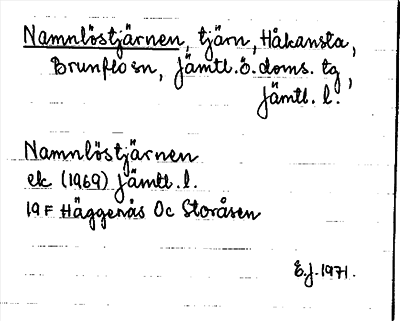 Namnlöstjärnen, tjärn, Håkansta,
Brunflo sn, Jämtl. Ö. doms. tg,
Jämtl. l.
Namnlöstjärnen
ek (1969) Jämtl. l.
19F Häggenås Oc Storåsen
E.J. 1971.